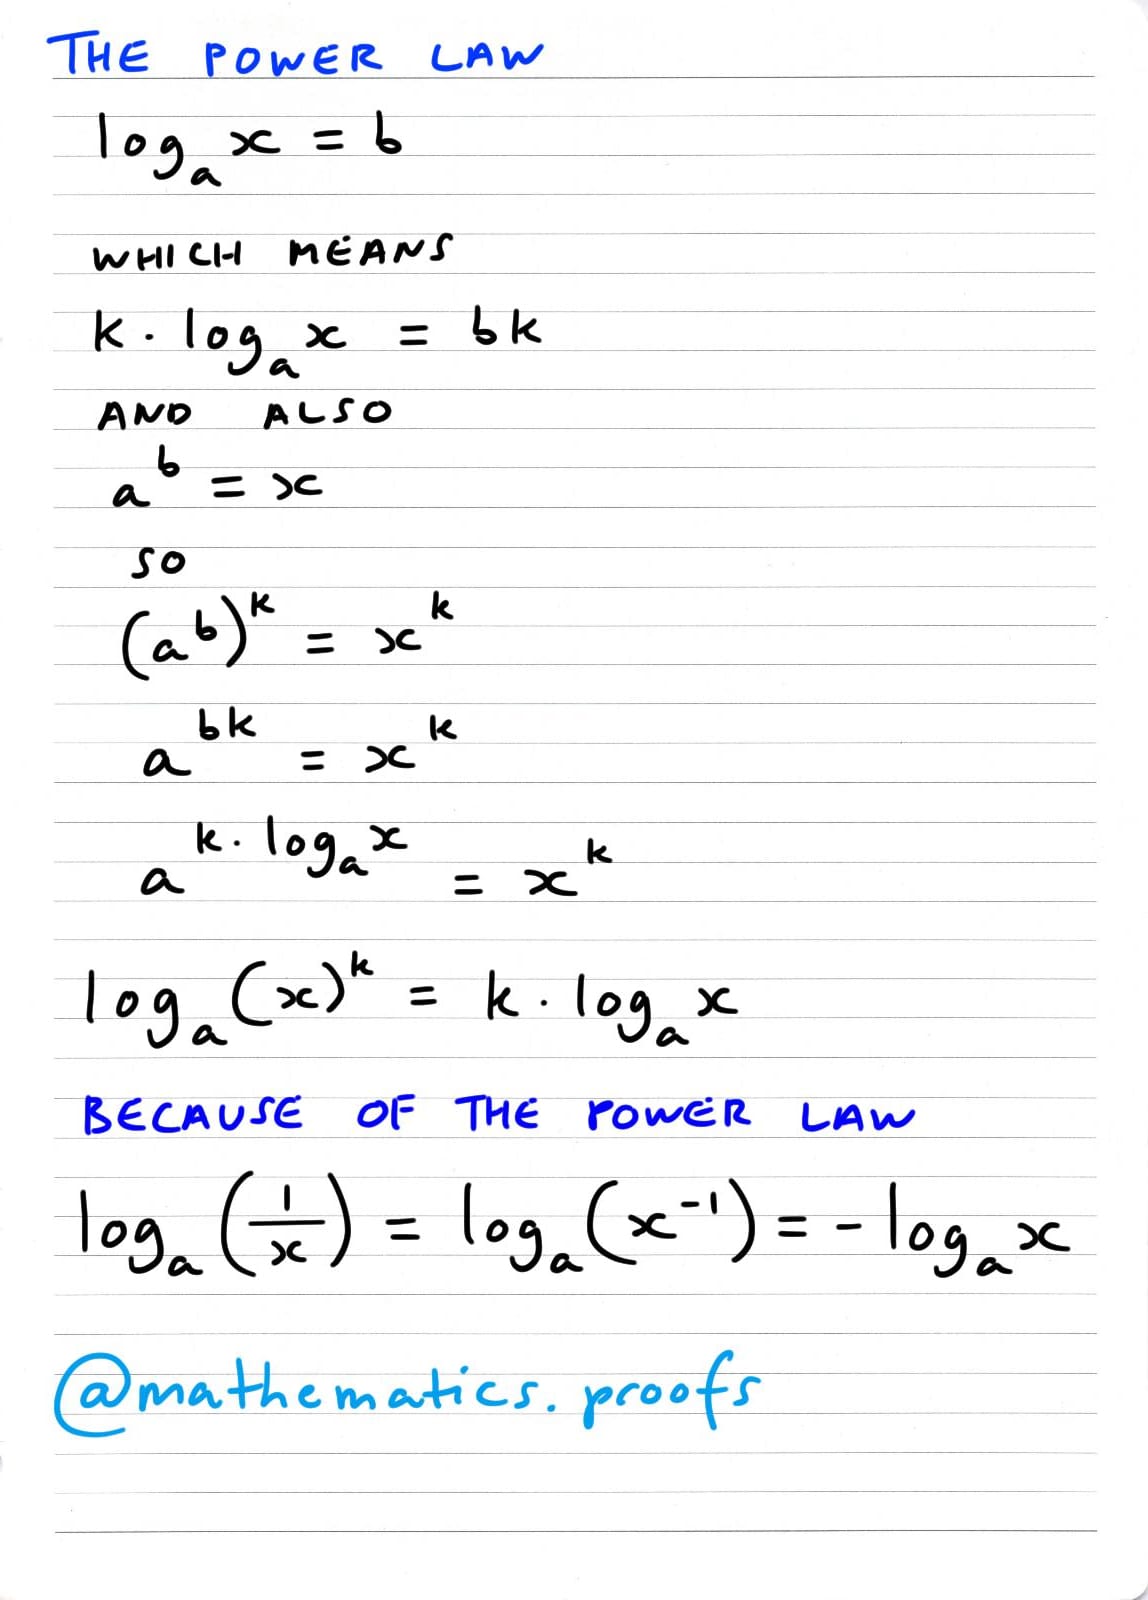 THE POWER LAW
logₐ x = b
WHICH MEANS
k · logₐ x = bk
AND ALSO
aᵇ = x
SO
(aᵇ)ᵏ = xᵏ
aᵇᵏ = xᵏ
a^(k · logₐ x) = xᵏ
logₐ (x)ᵏ = k · logₐ x
BECAUSE OF THE POWER LAW
logₐ (1/x) = logₐ (x⁻¹) = - logₐ x
@mathematics.proofs